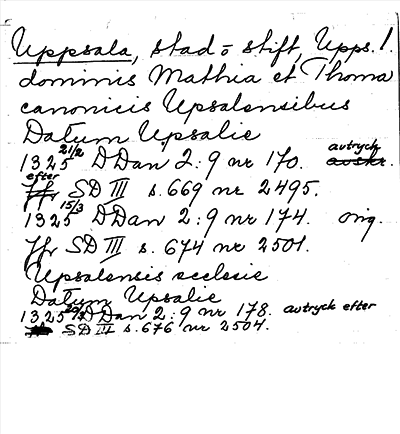 Uppsala, stad o stift, Upps. l.
dominis Mathia et Thoma
canonicis Upsalensibus
Datum Upsalie
1325 21/2 DDan 2:9 nr 170. avtryck avskr.
efter Jfr SD III s. 669 nr 2495.
1325 15/3 DDan 2:9 nr 174. orig.
Jfr SD III s. 674 nr 2501.
Upsalensis ecclesie
Datum Upsalie
1325 DDan 2:9 nr 178. avtryck efter
SD III s. 676 nr 2504.